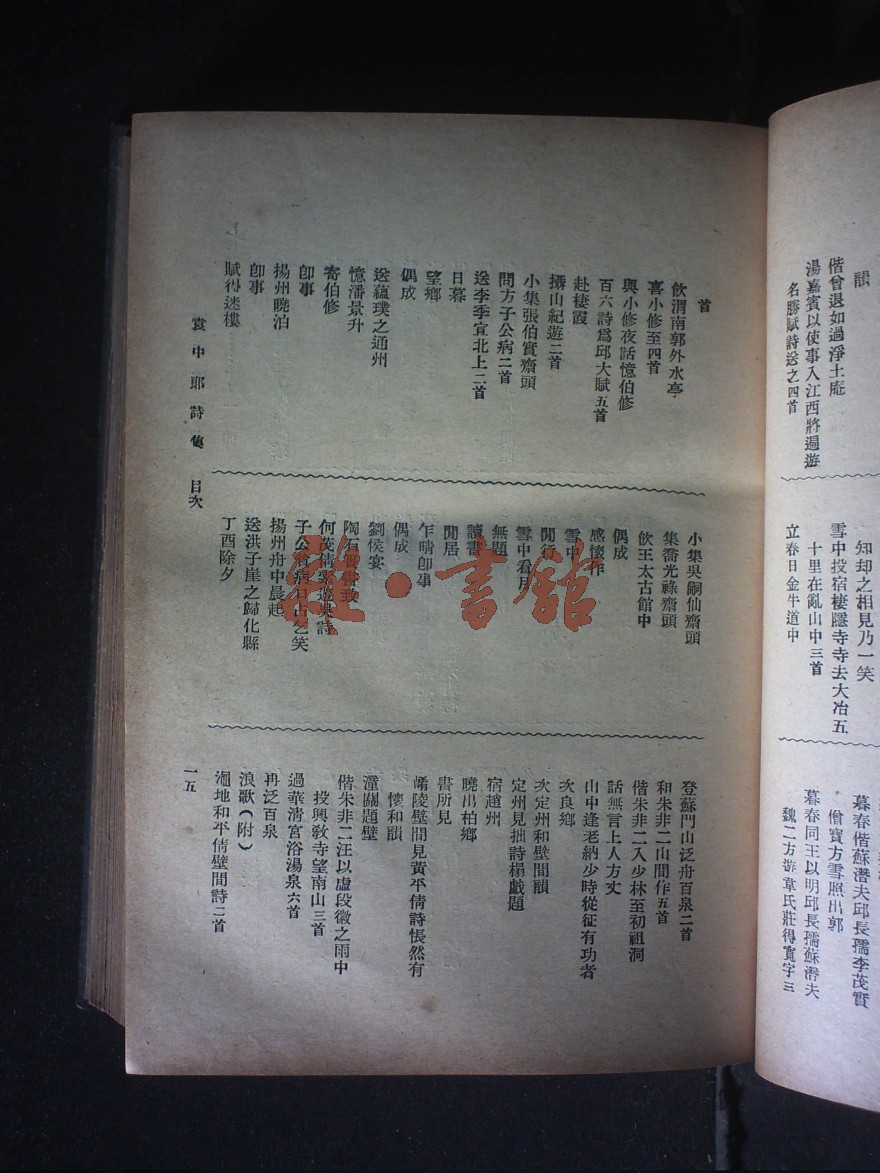 韻
偕曾退如過淨土庵
湯嘉賓以使事入江西將遍遊
名勝賦詩送之四首
知却之相見乃一笑
雪中投宿棲隱寺寺去大冶五
十里在亂山中三首
立春日金牛道中
暮春偕蘇潛夫邱長孺李茂實
僧寶方雪照出郭
暮春同王以明邱長孺蘇潛夫
魏二方游韋氏莊得寬字三
首
飲渭南郭外水亭
喜小修至四首
與小修夜話憶伯修
百六詩爲邱大賦五首
赴棲霞
攝山紀遊二首
小集張伯實齋頭
問方子公病二首
送李季宣北上二首
日暮
望鄉
偶成
送蘊璞之通州
憶潘景升
寄伯修
卽事
揚州曉泊
卽事
賦得迷樓
小集吳嗣仙齋頭
集喬光祿齋頭
飲王太古館中
偶成
感懷作
雪中
閒行
雪中看月
無題
讀書
閒居
乍晴卽事
偶成
劉侯宴
陶石
何茂倩 詩
子公 病口占乞笑
揚州舟中晨起
送洪子崖之歸化縣
丁酉除夕
登蘇門山泛舟百泉二首
和朱非二山間作五首
偕朱非二入少林至初祖洞
話無言上人方丈
山中逢老衲少時從征有功者
次良鄉
次定州和壁間韻
定州見拙詩榻戲題
宿趙州
曉出柏鄉
書所見
崤陵壁間見黃平倩詩悵然有
懷和韻
潼關題壁
偕朱非二汪以虛段徽之雨中
投興敎寺望南山三首
過華清宮浴湯泉六首
再泛百泉
浪歌(附)
澠池和平倩壁間詩二首
袁中郎詩集 目次
一五
書舘